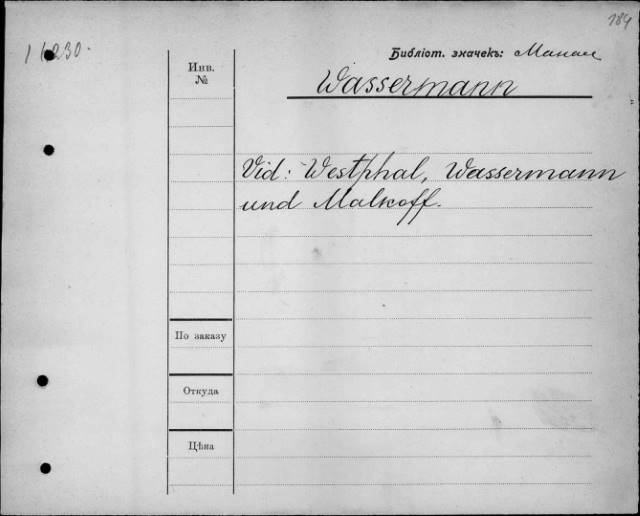 184
Библіот. значекъ:
Инв.
№
Wassermann
Vid: Westphal, Wassermann
und Malkoff.
По заказу
Откуда
Цѣна